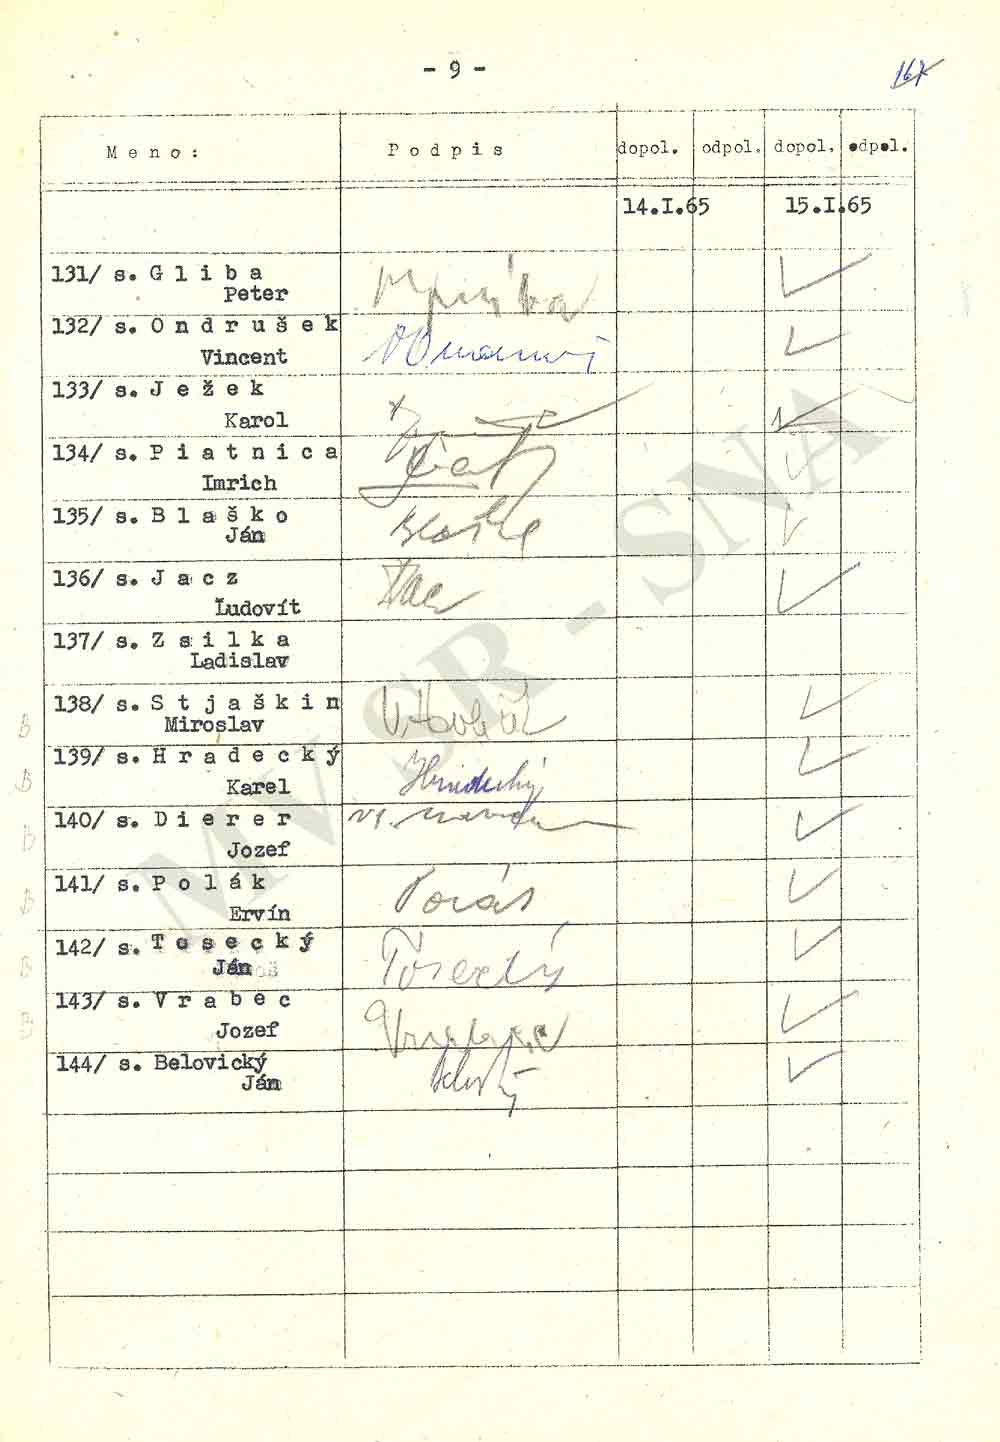 - 9 -
167
Meno: Podpis dopol. odpol. dopol. odpol.
14.I.65 15.I.65
131/ s. Gliba
Peter
132/ s. Ondrušek
Vincent
133/ s. Ježek
Karol
134/ s. Piatnica
Imrich
135/ s. Blaško
Ján
136/ s. Jacz
Ľudovít
137/ s. Zsilka
Ladislav
138/ s. Stjaškin
Miroslav
B
139/ s. Hradecký
Karel Hradecký
B
140/ s. Dierer
Jozef
B
141/ s. Polák
Ervín
B
142/ s. Tosecký
Ján Tosecký
B
143/ s. Vrabec
Jozef Vrabec
B
144/ s. Belovický
Ján
MV SR - SNA